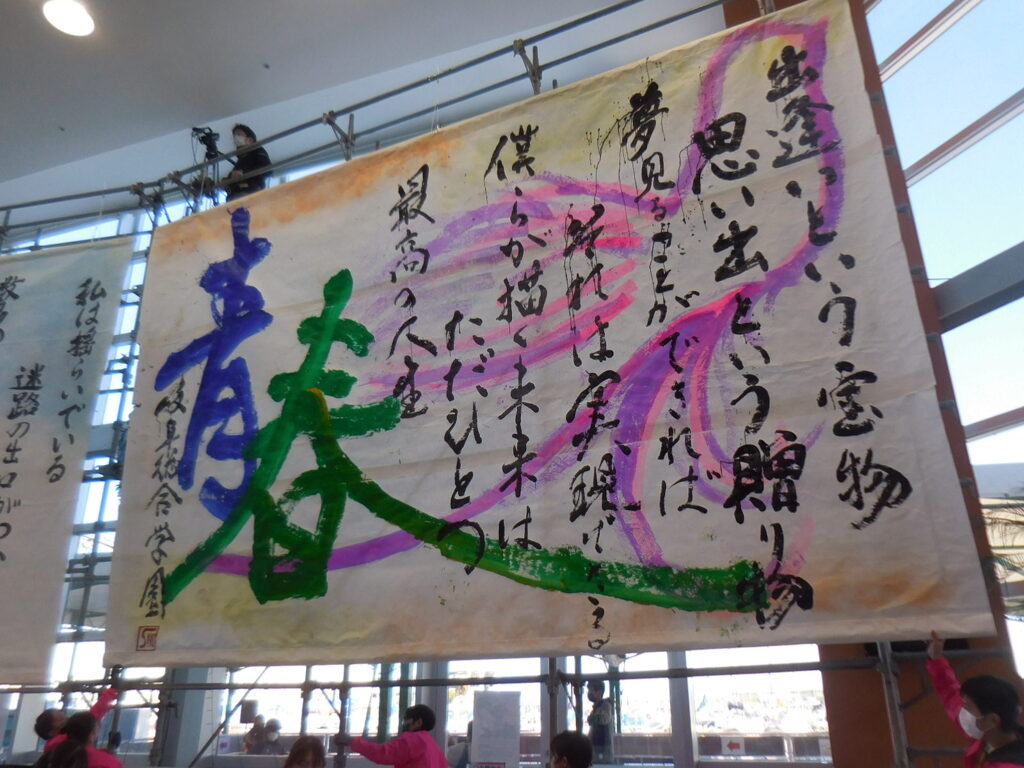 出逢いという宝物
思い出という贈り物
夢見ることができれば
それは実現できる
僕らが描く未来は
ただひとつ
最高の人生
青春
総合学園
私は揺らいでいる
迷路の出口が